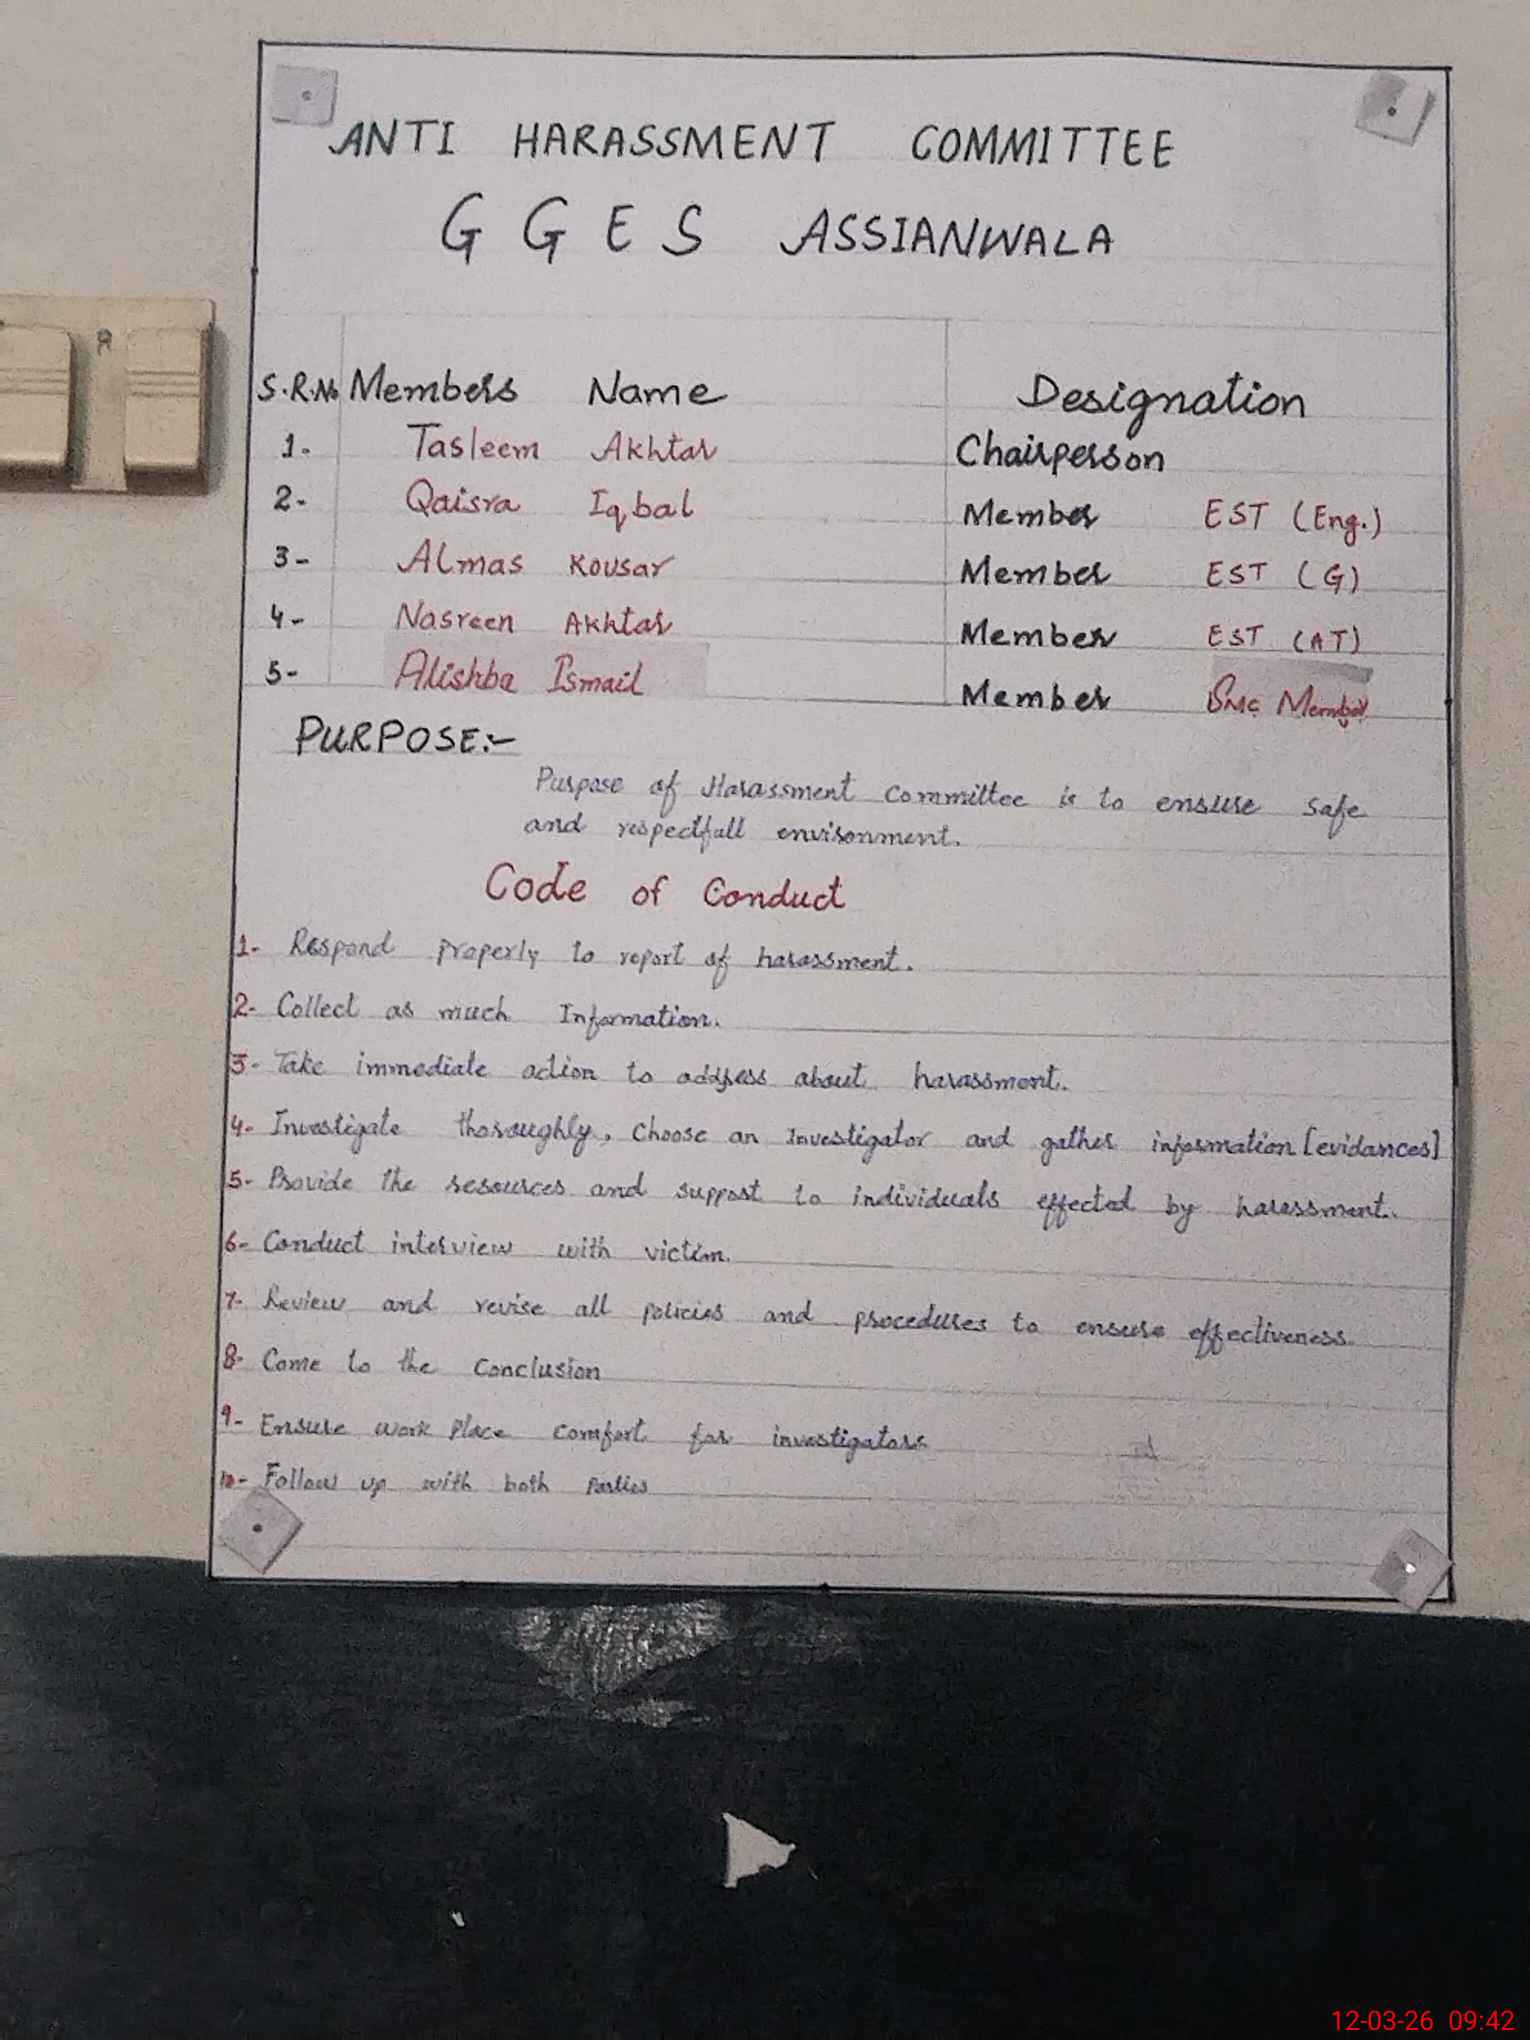 ANTI HARASSMENT COMMITTEE
G G E S ASSIANWALA
S.R.No Members Name Designation
1- Tasleem Akhtar Chairperson
2- Qaisra Iqbal Member EST (Eng.)
3- Almas Kousar Member EST (G)
4- Nasreen Akhtar Member EST (AT)
5- Alishba Ismail Member Smc Member
PURPOSE:-
Purpose of Harassment Committee is to ensure safe
and respectfull environment.
Code of Conduct
1- Respond properly to report of harassment.
2- Collect as much Information.
3- Take immediate action to address about harassment.
4- Investigate thoroughly, Choose an Investigator and gather information [evidances]
5- Provide the resources and support to individuals effected by harassment.
6- Conduct interview with victim.
7- Review and revise all policies and procedures to ensure effectiveness
8- Come to the Conclusion
9- Ensure work place comfort for investigators
10- Follow up with both Parties
12-03-26 09:42